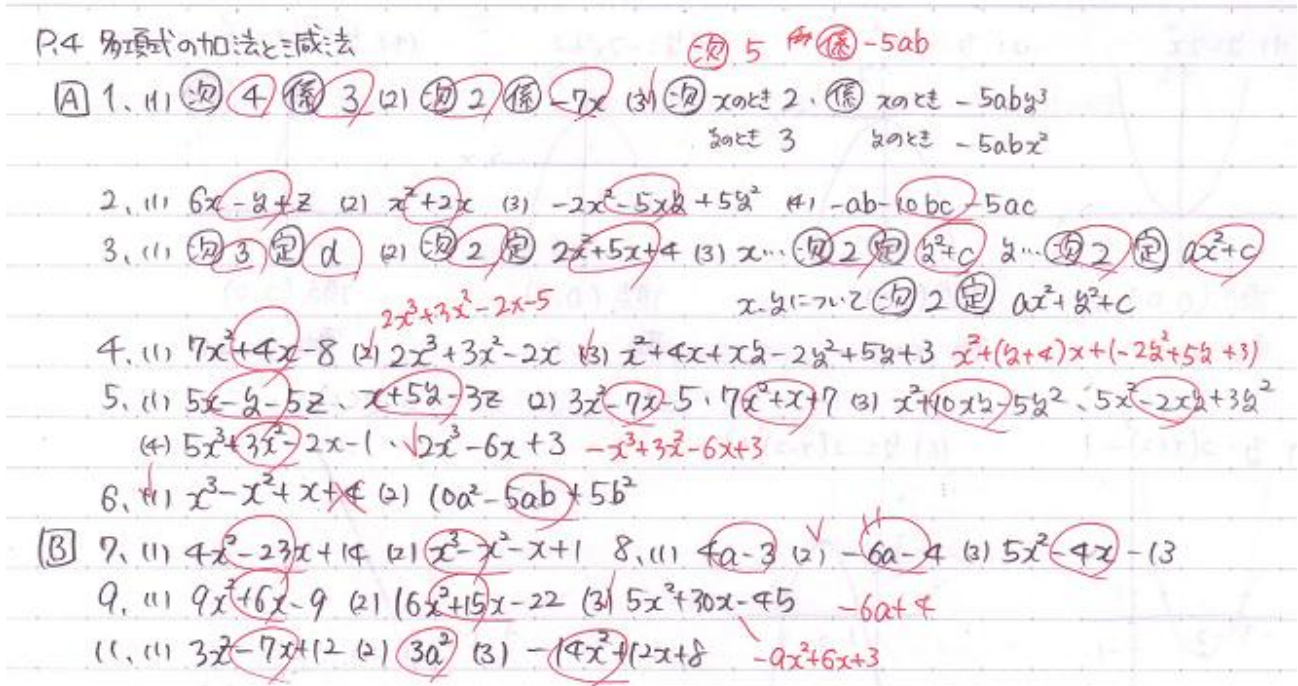 P.4 多項式の加法と減法
次 5 係 -5ab
A 1. (1) 次 4 係 3 (2) 次 2 係 -7x (3) 次 xのとき 2. 係 xのとき -5aby³
yのとき 3 yのとき -5abx²
2. (1) 6x-y+z (2) x²+2x (3) -2x²-5xy+5y² (4) -ab-10bc-5ac
3. (1) 次 3 定 d (2) 次 2 定 2x²+5x+4 (3) x… 次 2 定 y²+c y… 次 2 定 ax²+c
x.yについて 次 2 定 ax²+y²+c
2x³+3x²-2x-5
4. (1) 7x²+4x-8 (2) 2x³+3x²-2x (3) x²+4x+xy-2y²+5y+3 x²+(y+4)x+(-2y²+5y+3)
5. (1) 5x-y-5z、x+5y-3z (2) 3x²-7x-5、7x²+x+7 (3) x²+10xy-5y²、5x²-2xy+3y²
(4) 5x³+3x²-2x-1 2x³-6x+3 -x³+3x²-6x+3
6. (1) x³-x²+x+4 (2) 10a²-5ab+5b²
B 7. (1) 4x²-23x+14 (2) x³-x²-x+1 8. (1) 4a-3 (2) -6a-4 (3) 5x²-4x-13
9. (1) 9x²+6x-9 (2) 16x²+15x-22 (3) 5x²+30x-45 -6a+4
11. (1) 3x²-7x+12 (2) 3a² (3) -14x²+12x+8 -9x²+6x+3